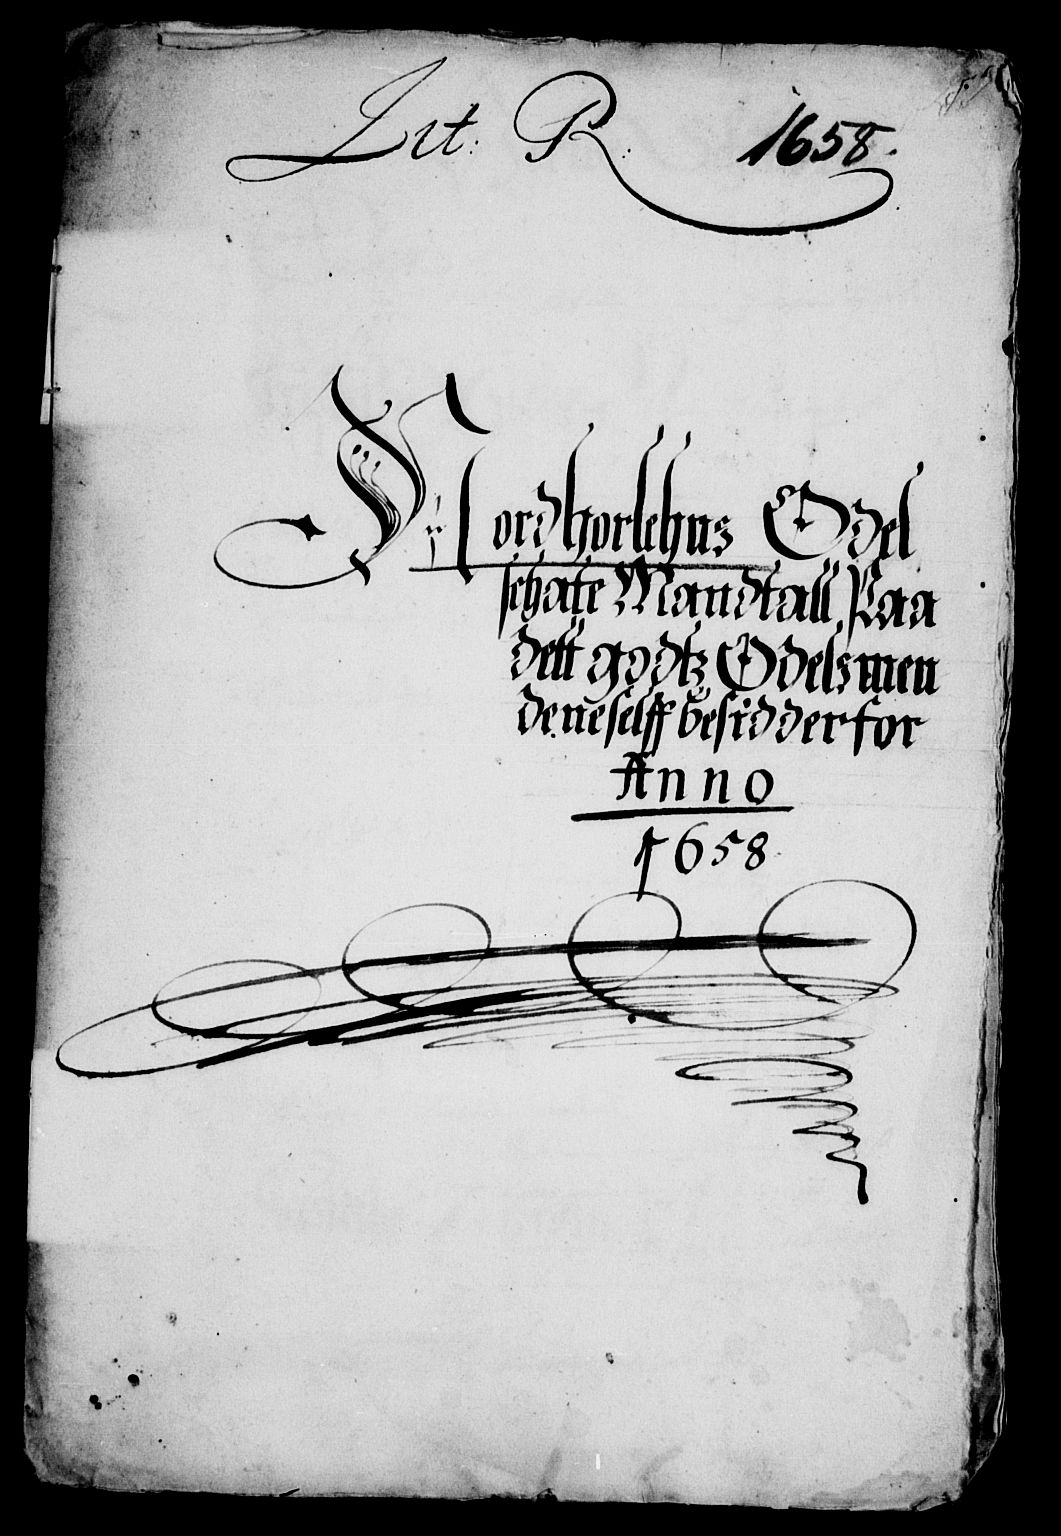 Lit: R: 1658.
Nordhorlehns Odel
schate Mandtall, Paa
dett godtz Odelsmen
dene selff besidder for
Anno
1658